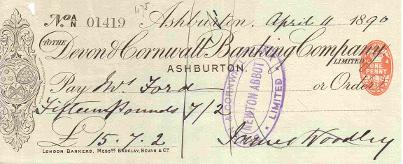 No A/N 01419 Ashburton, April 11 1890
TO THE
Devon & Cornwall Banking Company
LIMITED
ASHBURTON.
Pay Mrs Ford or Order
Fifteen Pounds 7/2
£ 15.7.2 James Woodley
LONDON BANKERS, MESSRS BARCLAY, BEVAN & Co
ONE PENNY
NEWTON ABBOT
LIMITED